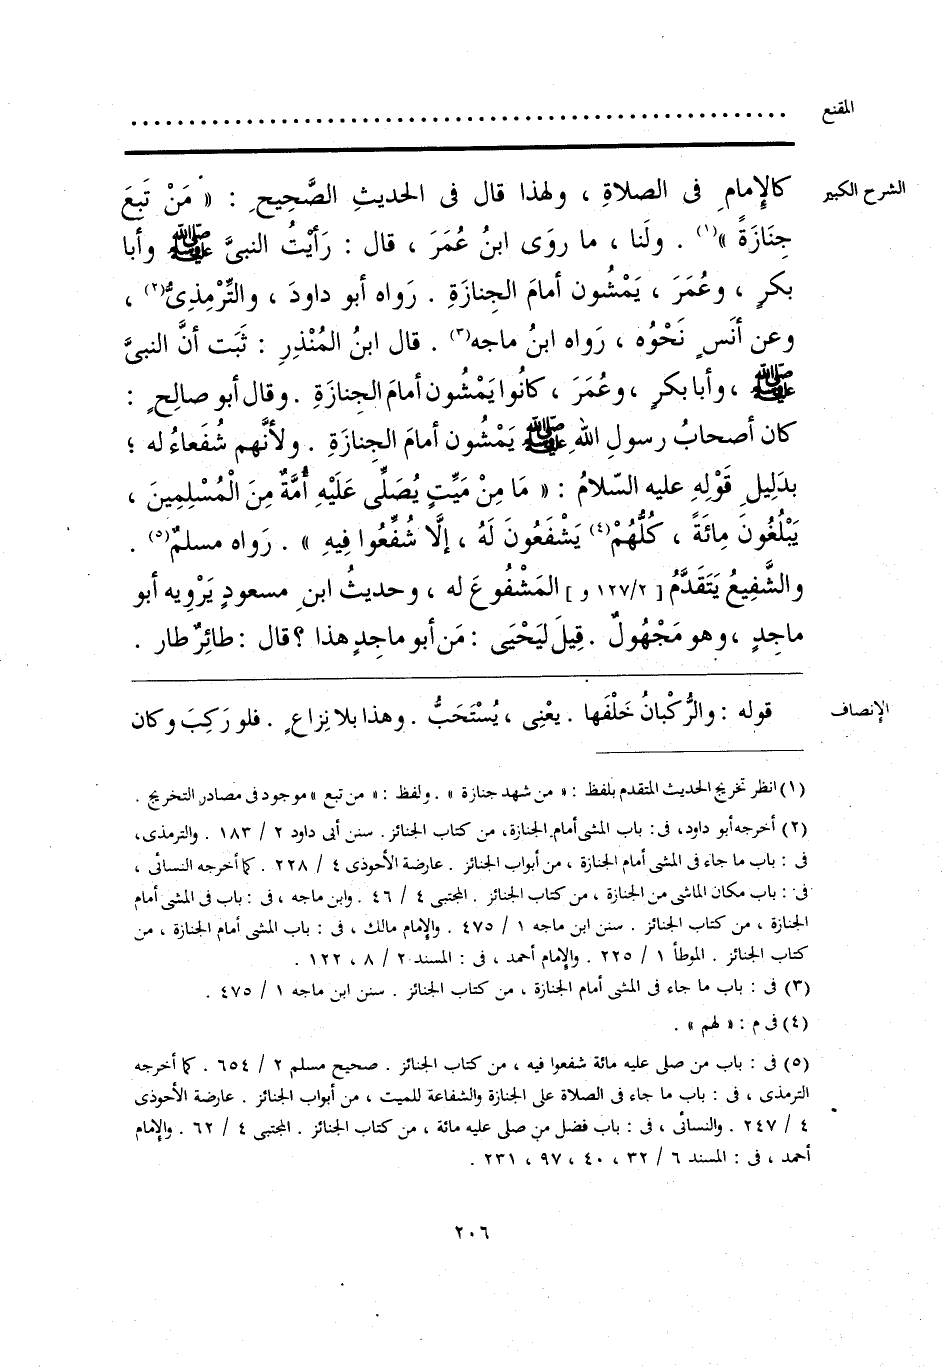 المقنع ............................................................
الشرح الكبير كالإِمامِ فى الصلاةِ ، ولهذا قال فى الحديثِ الصَّحِيحِ : « مَنْ تَبِعَ
جِنَازَةً »(١) . ولَنا ، ما روَى ابنُ عُمَرَ ، قال : رَأيْتُ النبىَّ ﷺ وأبا
بكرٍ ، وعُمَرَ ، يَمْشُون أمامَ الجِنازَةِ . رَواه أبو داودَ ، والتِّرْمِذِىُّ(٢) ،
وعن أنَسٍ نَحْوُه ، رَواه ابنُ ماجه(٣) . قال ابنُ المُنْذِرِ : ثَبَت أنَّ النبىَّ
ﷺ ، وأبا بكرٍ ، وعُمَرَ ، كانُوا يَمْشُون أمامَ الجِنازَةِ . وقال أبو صالِحٍ :
كان أصحابُ رسولِ اللهِ ﷺ يَمْشُون أمامَ الجِنازَةِ . ولأنَّهم شُفَعاءُ له ؛
بدَلِيلِ قَوْلِه عليه السّلامُ : « مَا مِنْ مَيِّتٍ يُصَلِّى عَلَيْهِ أُمَّةٌ مِنَ الْمُسْلِمِينَ ،
يَبْلُغُونَ مِائَةً ، كُلُّهُمْ(٤) يَشْفَعُونَ لَهُ ، إلَّا شُفِّعُوا فِيهِ » . رَواه مسلمٌ(٥) .
والشَّفِيعُ يَتَقَدَّمُ [ ١٢٧/٢ و ] المَشْفُوعَ له ، وحديثُ ابنِ مسعودٍ يَرْوِيه أبو
ماجِدٍ ، وهو مَجْهُولٌ . قِيلَ ليَحْيَى : مَن أبو ماجِدٍ هذا ؟ قال : طائِرٌ طار .
الإنصاف قوله : والرُّكْبانُ خَلْفَها . يعْنِى ، يُسْتَحَبُّ . وهذا بلا نِزاعٍ . فلو رَكِبَ وكان
(١) انظر تخريج الحديث المتقدم بلفظ : « من شهد جنازة » . ولفظ : « من تبع » موجود فى مصادر التخريج .
(٢) أخرجه أبو داود، فى : باب المشى أمام الجنازة، من كتاب الجنائز. سنن أبى داود ٢ / ١٨٣ . والترمذى،
فى : باب ما جاء فى المشى أمام الجنازة ، من أبواب الجنائز . عارضة الأحوذى ٤ / ٢٢٨ . كما أخرجه النسائى ،
فى : باب مكان الماشى من الجنازة ، من كتاب الجنائز . المجتبى ٤ / ٤٦ . وابن ماجه ، فى : باب فى المشى أمام
الجنازة ، من كتاب الجنائز . سنن ابن ماجه ١ / ٤٧٥ . والإمام مالك ، فى : باب المشى أمام الجنازة ، من
كتاب الجنائز . الموطأ ١ / ٢٢٥ . والإمام أحمد ، فى : المسند ٢ / ٨ ، ١٢٢ .
(٣) فى : باب ما جاء فى المشى أمام الجنازة ، من كتاب الجنائز . سنن ابن ماجه ١ / ٤٧٥ .
(٤) فى م : « لهم » .
(٥) فى : باب من صلى عليه مائة شفعوا فيه ، من كتاب الجنائز . صحيح مسلم ٢ / ٦٥٤ . كما أخرجه
الترمذى ، فى : باب ما جاء فى الصلاة على الجنازة والشفاعة للميت ، من أبواب الجنائز . عارضة الأحوذى
٤ / ٢٤٧ . والنسائى ، فى : باب فضل من صلى عليه مائة ، من كتاب الجنائز . المجتبى ٤ / ٦٢ . والإمام
أحمد ، فى : المسند ٦ / ٣٢ ، ٤٠ ، ٩٧ ، ٢٣١ .
٢٠٦